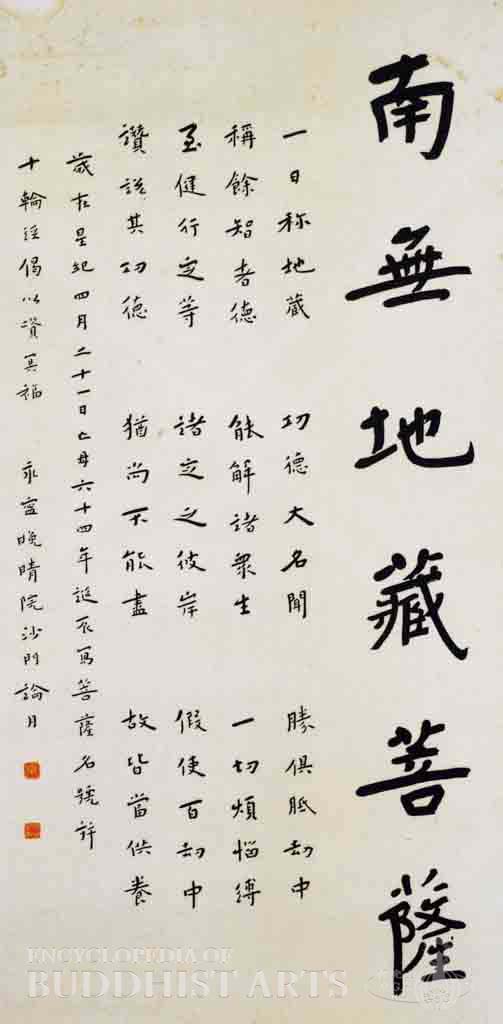 南無地藏菩薩
一日称地藏 功德大名聞 勝俱胝劫中
稱餘智者德 能解諸衆生 一切煩惱縛
至健行定等 諸定之彼岸 假使百劫中
讚說其功德 猶尚不能盡 故皆當供養
歲在星紀四月二十一日亡母六十四年誕辰写菩薩名號并
十輪經偈以資冥福 永寧晚晴院沙門論月
ENCYCLOPEDIA OF
BUDDHIST ARTS